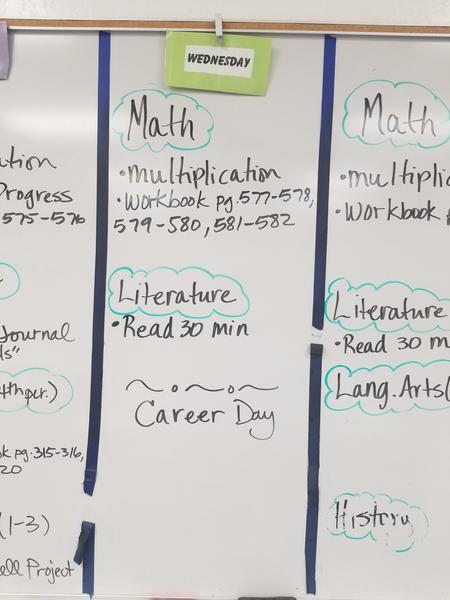 WEDNESDAY
Math
•multiplication
•Workbook pg. 577-578,
579-580, 581-582
Literature
•Read 30 min
Career Day
Progress
575-576
Journal
4th per.)
pg. 315-316,
20
(1-3)
Project
Math
•Workbook
Literature
•Read 30 m
Lang. Arts(
History